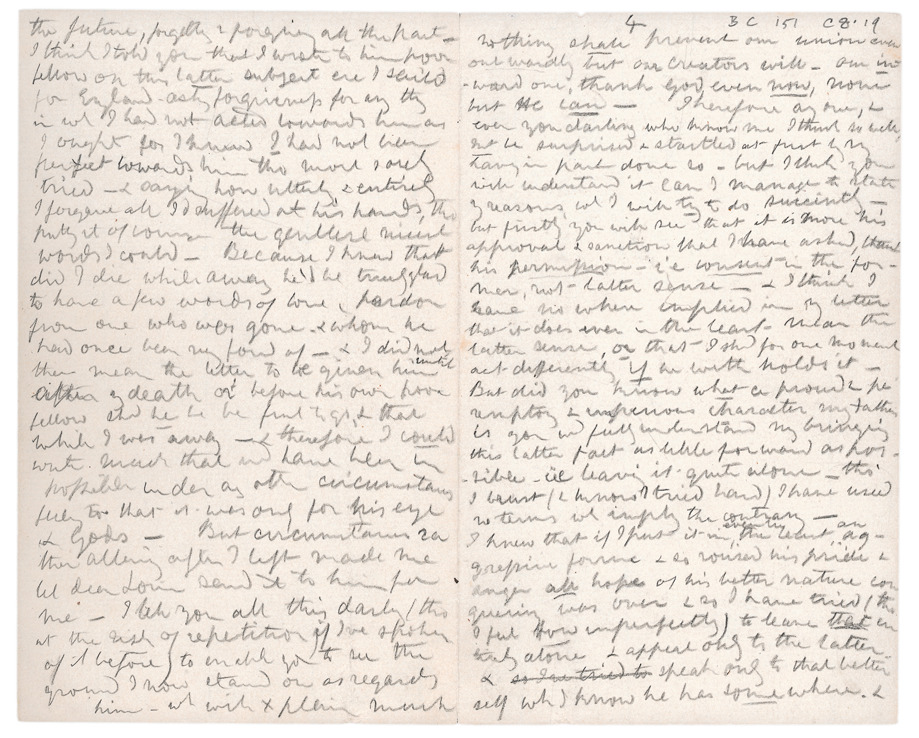 the future, forgetting & forgiving all the past -
I think I told you that I wrote to him poor
fellow on this latter subject ere I sailed
for England - asking forgiveness for any thg
in wh I had not acted towards him as
I ought for I knew I had not been
perfect towards him tho most sorely
tried - & saying how utterly & entirely
I forgave all I'd suffered at his hands, tho
putting it of course in the gentlest nicest
words I could - Because I knew that
did I die while away he'd be truly glad
to have a few words of love & pardon
from one who was gone & whom he
had once been very fond of - & I did not
then mean the letter to be given him until
either my death or before his own poor
fellow shd he be the first to go, & that
while I was away - & therefore I could
write much that wd have been im
possible under any other circumstances
feeling that it was only for his eye
& Gods - But circumstances ra
ther altering after I left made me
let dear Louie send it to him for
me - I tell you all this darling (tho
at the risk of repetition if I've spoken
of it before) to enable you to see the
ground I now stand on as regards
him - wh will explain much
4 BC 151 C8.19
nothing shall prevent our union even
outwardly but our Creators will - our in
-ward one, thank God, even now, none
but He can - Therefore any one, &
even you darling who know me I think so well,
might be surprised & startled at first by my
having in part done so - but I think you
will understand it can I manage to state
my reasons, wh I will try to do succinctly -
but firstly you will see that it is more his
approval & sanction that I have asked, than
his permission - i.e consent in the for-
mer, not latter sense - & I think I
have no where implied in my letter
that it does ever in the least mean the
latter sense, or that I shd for one moment
act differently if he with holds it -
But did you know what a proud & pe
remptory & imperious character my father
is you wd fully understand my bringing
this latter fact as little forward as pos-
sible - i.e leaving it quite alone - tho'
I trust (& know I tried hard) I have used
no terms wh imply the contrary - as
I knew that if I put it in, even in the least, ag-
gressive form & so roused his pride &
anger all hope of his better nature con
quering was over & so I have tried (tho
I feel how imperfectly) to leave that en
tirely alone & appeal only to the latter -
& so I've tried to speak only to that better
self wh I know he has somewhere. &